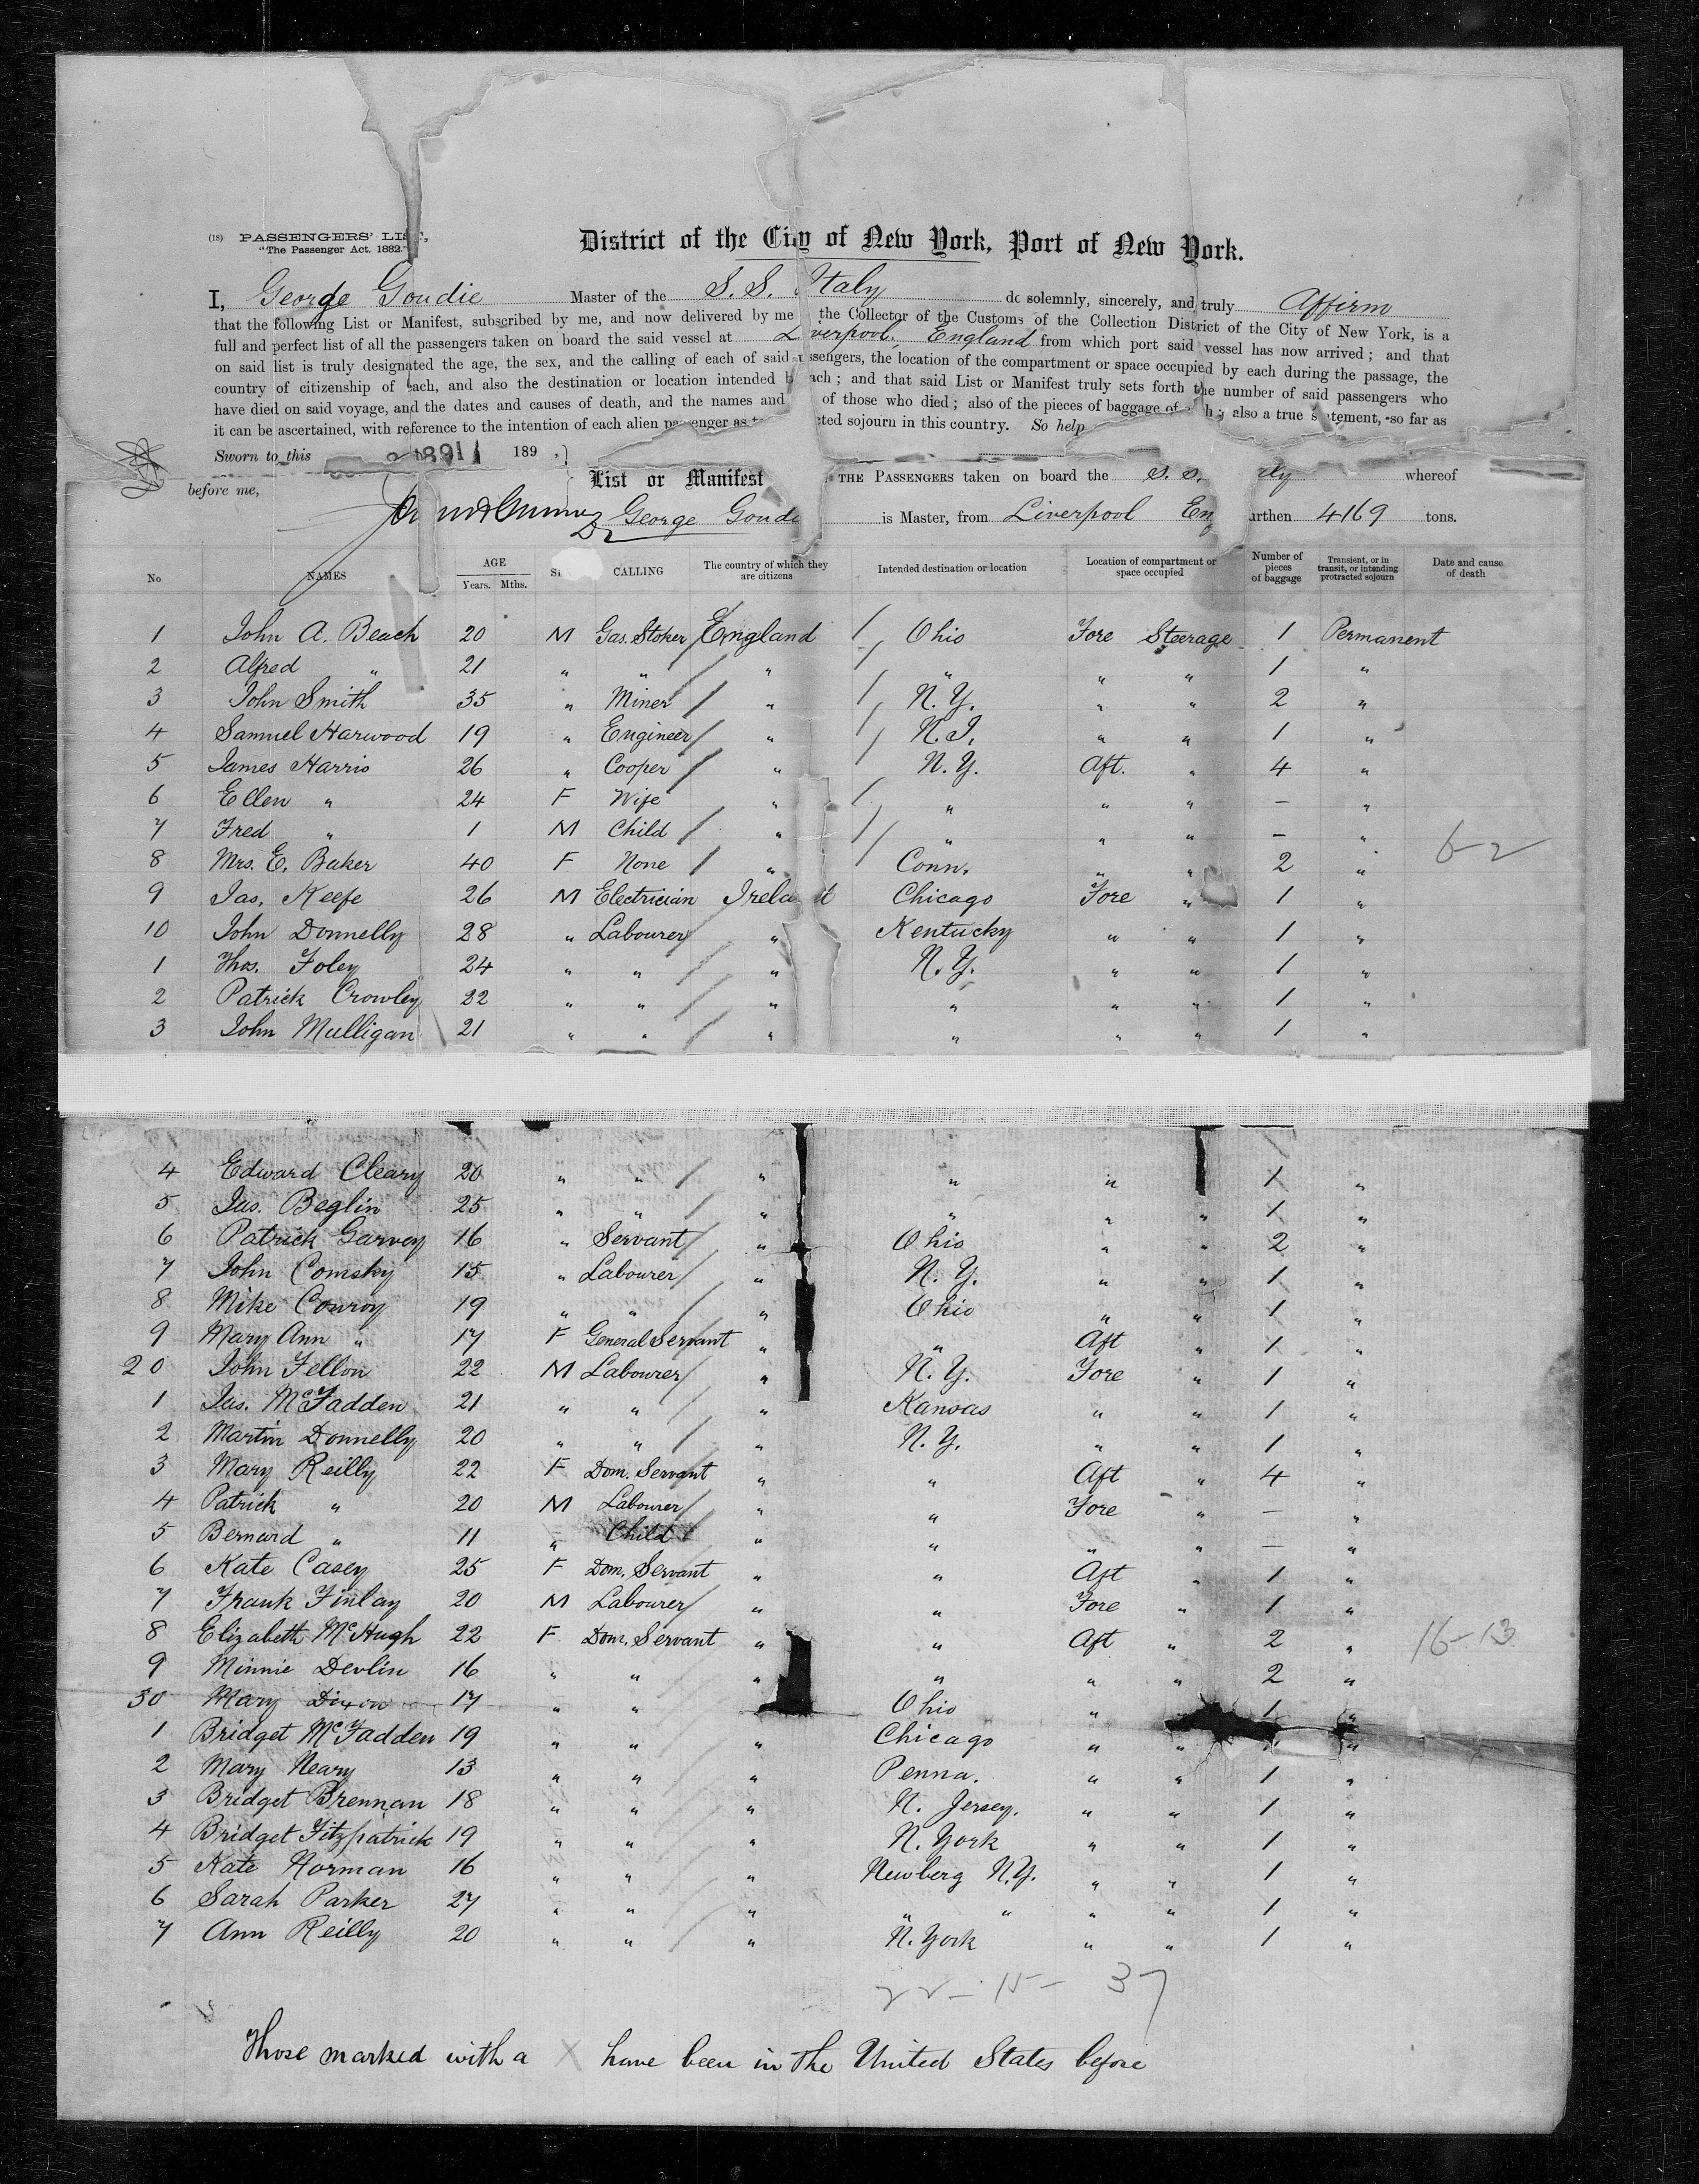 (18) PASSENGERS' LIST,
"The Passenger Act. 1882."
District of the City of New York, Port of New York.
I, George Goudie Master of the S.S. Italy do solemnly, sincerely, and truly Affirm
that the following List or Manifest, subscribed by me, and now delivered by me the Collector of the Customs of the Collection District of the City of New York, is a
full and perfect list of all the passengers taken on board the said vessel at Liverpool, England from which port said vessel has now arrived; and that
on said list is truly designated the age, the sex, and the calling of each of said passengers, the location of the compartment or space occupied by each during the passage, the
country of citizenship of each, and also the destination or location intended by each; and that said List or Manifest truly sets forth the number of said passengers who
have died on said voyage, and the dates and causes of death, and the names and of those who died; also of the pieces of baggage of each; also a true statement, so far as
it can be ascertained, with reference to the intention of each alien passenger as to cted sojourn in this country. So help
Sworn to this 1891 189
List or Manifest THE PASSENGERS taken on board the S.S. ly whereof
before me, George Goudie is Master, from Liverpool Eng urthen 4169 tons.
No NAMES AGE Years. Mths. SE CALLING The country of which they are citizens Intended destination or location Location of compartment or space occupied Number of pieces of baggage Transient, or in transit, or intending protracted sojourn Date and cause of death
1 John A. Beach 20 M Gas. Stoker England Ohio Fore Steerage 1 Permanent
2 Alfred " 21 " " " " " " 1 "
3 John Smith 35 " Miner " N.Y. " " 2 "
4 Samuel Harwood 19 " Engineer " N.J. " " 1 "
5 James Harris 26 " Cooper " N.Y. Aft. " 4 "
6 Ellen " 24 F Wife " " " " – "
7 Fred " 1 M Child " " " " – "
8 Mrs. E. Baker 40 F None " Conn. " " 2 "
6-2
9 Jas. Keefe 26 M Electrician Irela Chicago Fore " 1 "
10 John Donnelly 28 " Labourer " Kentucky " " 1 "
1 Thos. Foley 24 " " " N.Y. " " 1 "
2 Patrick Crowley 22 " " " " " " 1 "
3 John Mulligan 21 " " " " " " 1 "
4 Edward Cleary 20 " " " " " 1 "
5 Jas. Beglin 25 " " " " " " 1 "
6 Patrick Garvey 16 " Servant " Ohio " " 2 "
7 John Comsky 15 " Labourer " N.Y. " " 1 "
8 Mike Conroy 19 " " " Ohio " " 1 "
9 Mary Ann " 17 F General Servant " " Aft " 1 "
20 John Fellon 22 M Labourer " N.Y. Fore " 1 "
1 Jas. McFadden 21 " " " Kansas " " 1 "
2 Martin Donnelly 20 " " " N.Y. " " 1 "
3 Mary Reilly 22 F Dom. Servant " " Aft " 4 "
4 Patrick " 20 M Labourer " " Fore " – "
5 Bernard " 11 " Child " " " " – "
6 Kate Casey 25 F Dom. Servant " " Aft " 1 "
7 Frank Finlay 20 M Labourer " " Fore " 1 "
8 Elizabeth McHugh 22 F Dom. Servant " " Aft " 2 "
16-13
9 Minnie Devlin 16 " " " " " " 2 "
30 Mary Dixon 17 " " Ohio " 1 "
1 Bridget McFadden 19 " " " Chicago " " "
2 Mary Neary 13 " " " Penna. " " 1 "
3 Bridget Brennan 18 " " " N. Jersey. " " 1 "
4 Bridget Fitzpatrick 19 " " " N. York " " 1 "
5 Kate Norman 16 " " " Newberg N.Y. " " 1 "
6 Sarah Parker 27 " " " " " " " 1 "
7 Ann Reilly 20 " " " N. York " " 1 "
22-15- 37
Those marked with a X have been in the United States before